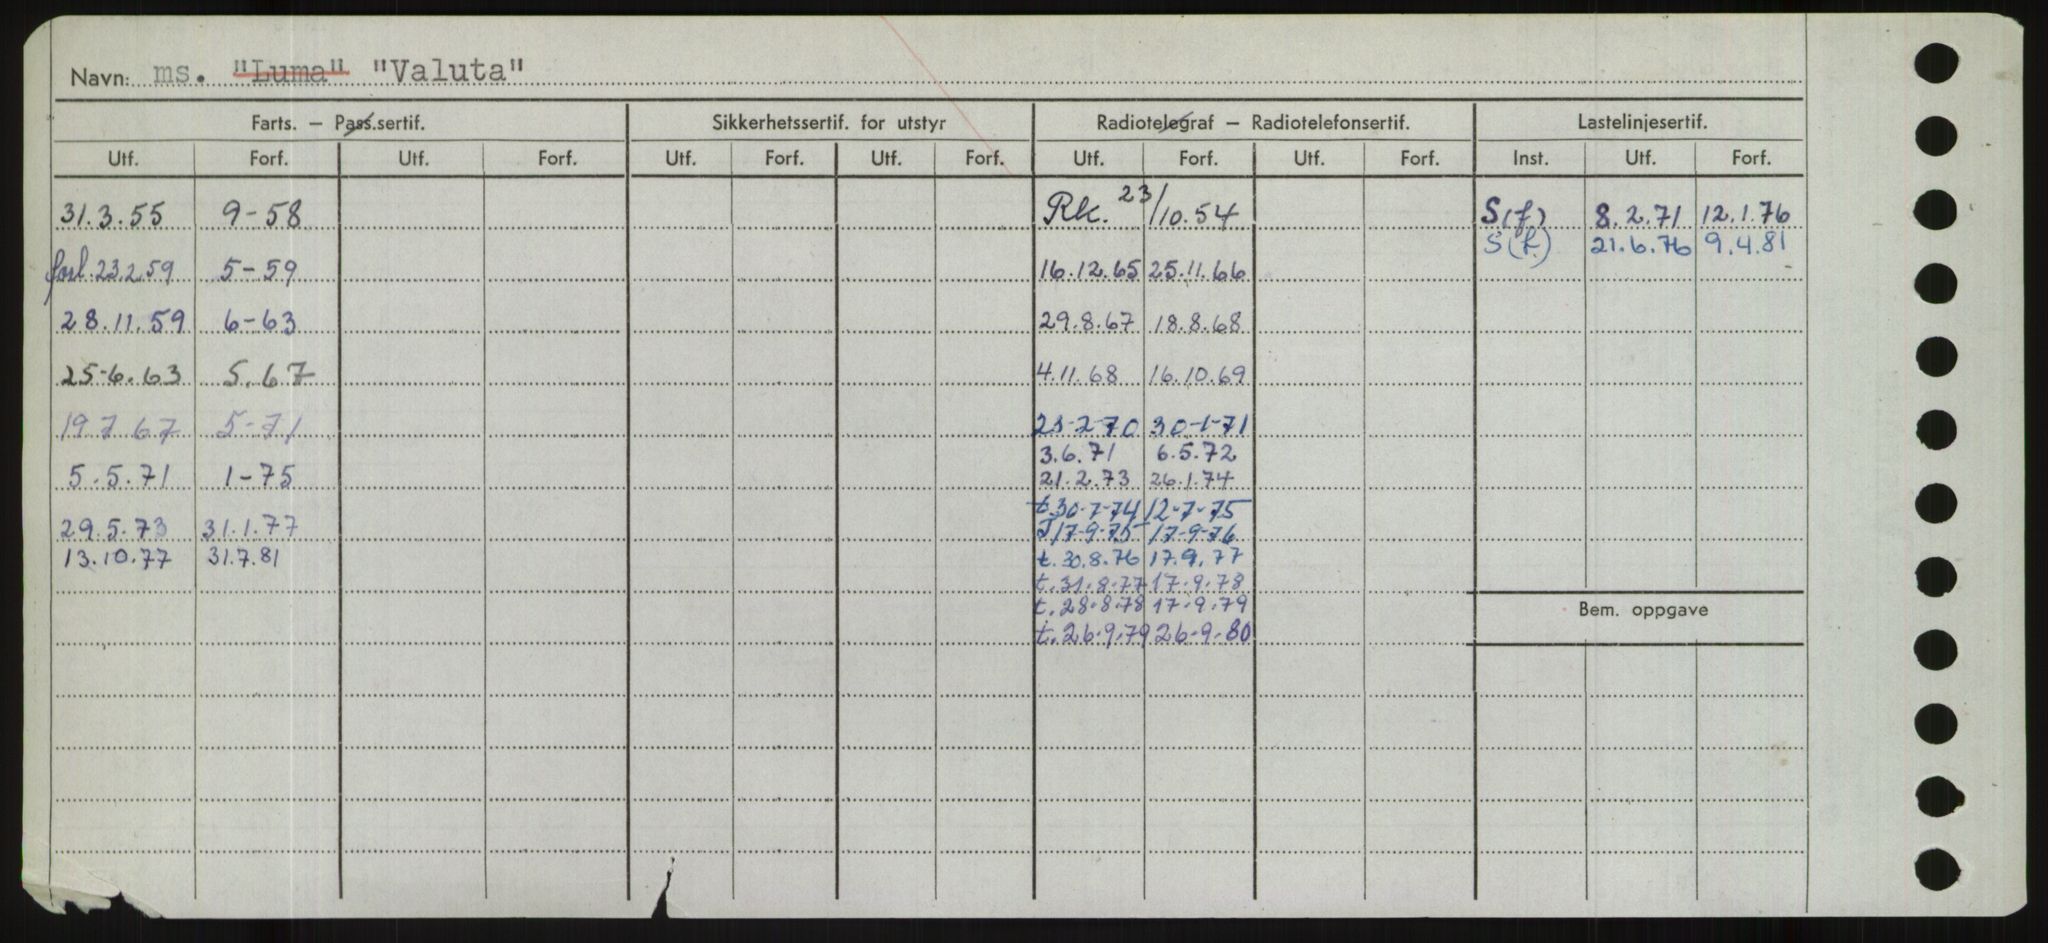 Navn: ms. "Luma" "Valuta"
Farts. – Pass.sertif. Sikkerhetssertif. for utstyr Radiotelegraf – Radiotelefonsertif. Lastelinjesertif.
Utf. Forf. Utf. Forf. Utf. Forf. Utf. Forf. Utf. Forf. Utf. Forf. Inst. Utf. Forf.
31.3.55 9-58 Rk. 23/10.54 S(f) 8.2.71 12.1.76
S(f) 21.6.76 9.4.81
forl. 23.2.59 5-59 16.12.65 25.11.66
28.11.59 6-63 29.8.67 18.8.68
25-6.63 5.67 4.11.68 16.10.69
19.7.67 5-71 23-2-70 30-1-71
3.6.71 6.5.72
5.5.71 1-75 21.2.73 26.1.74
t.30-7-74 12-7-75
29.5.73 31.1.77 T17-9-75 17-9-76
13.10.77 31.7.81 t.30.8.76 17.9.77
t.31.8.77 17.9.78
t.28.8.78 17-9.79
Bem. oppgave
t.26.9.79 26-9-80